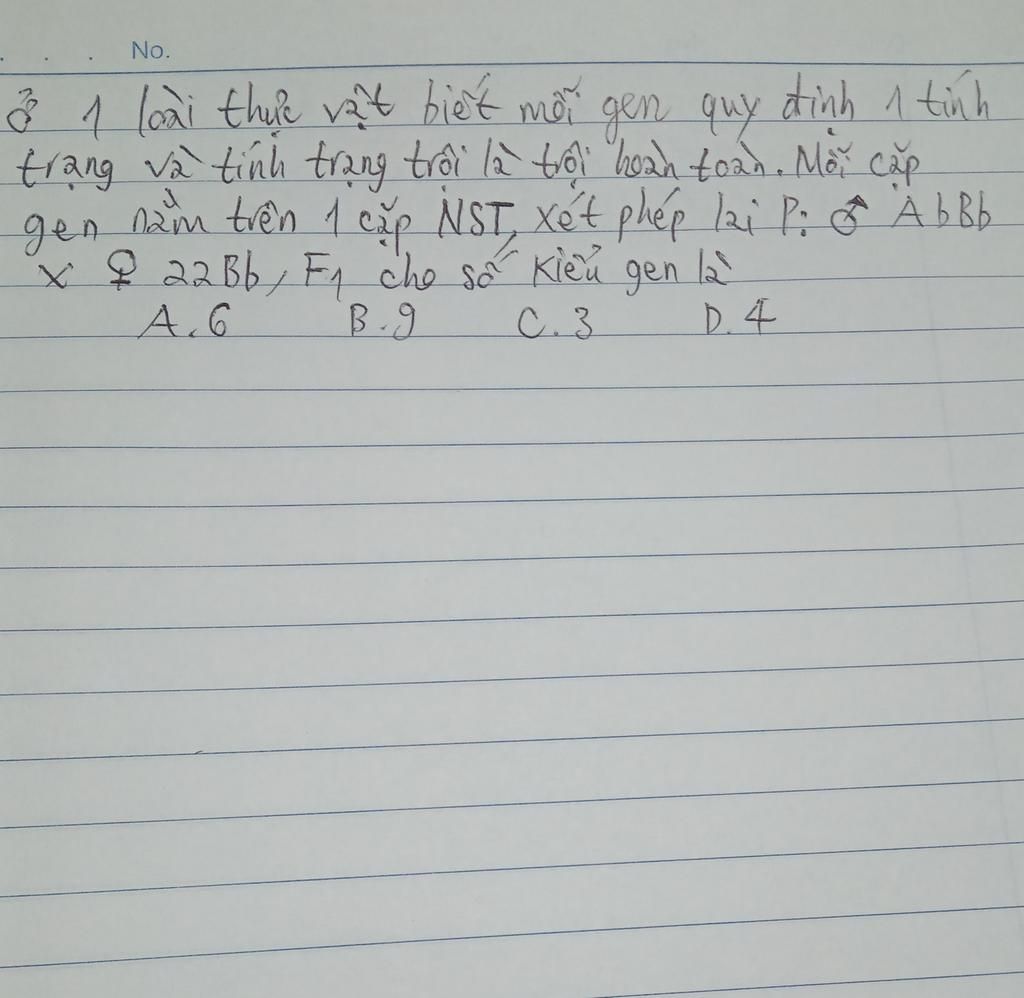 No.
ở 1 loài thực vật biết mỗi gen quy định 1 tính
trạng và tính trạng trội là trội hoàn toàn. Mỗi cặp
gen nằm trên 1 cặp NST, xét phép lai P: ♂ AbBb
x ♀ aaBb, F1 cho số kiểu gen là
A. 6 B. 9 C. 3 D. 4